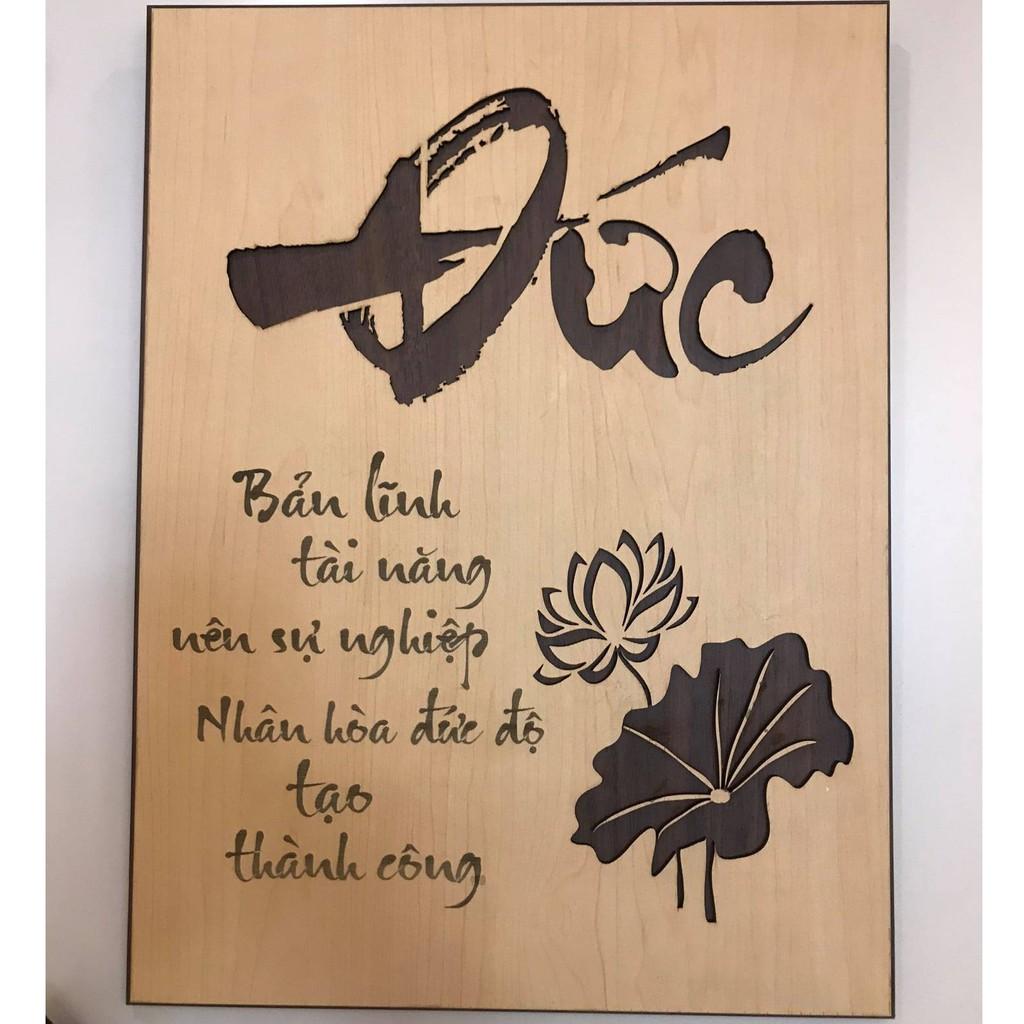 Đức
Bản lĩnh
tài năng
nên sự nghiệp
Nhân hòa đức độ
tạo
thành công